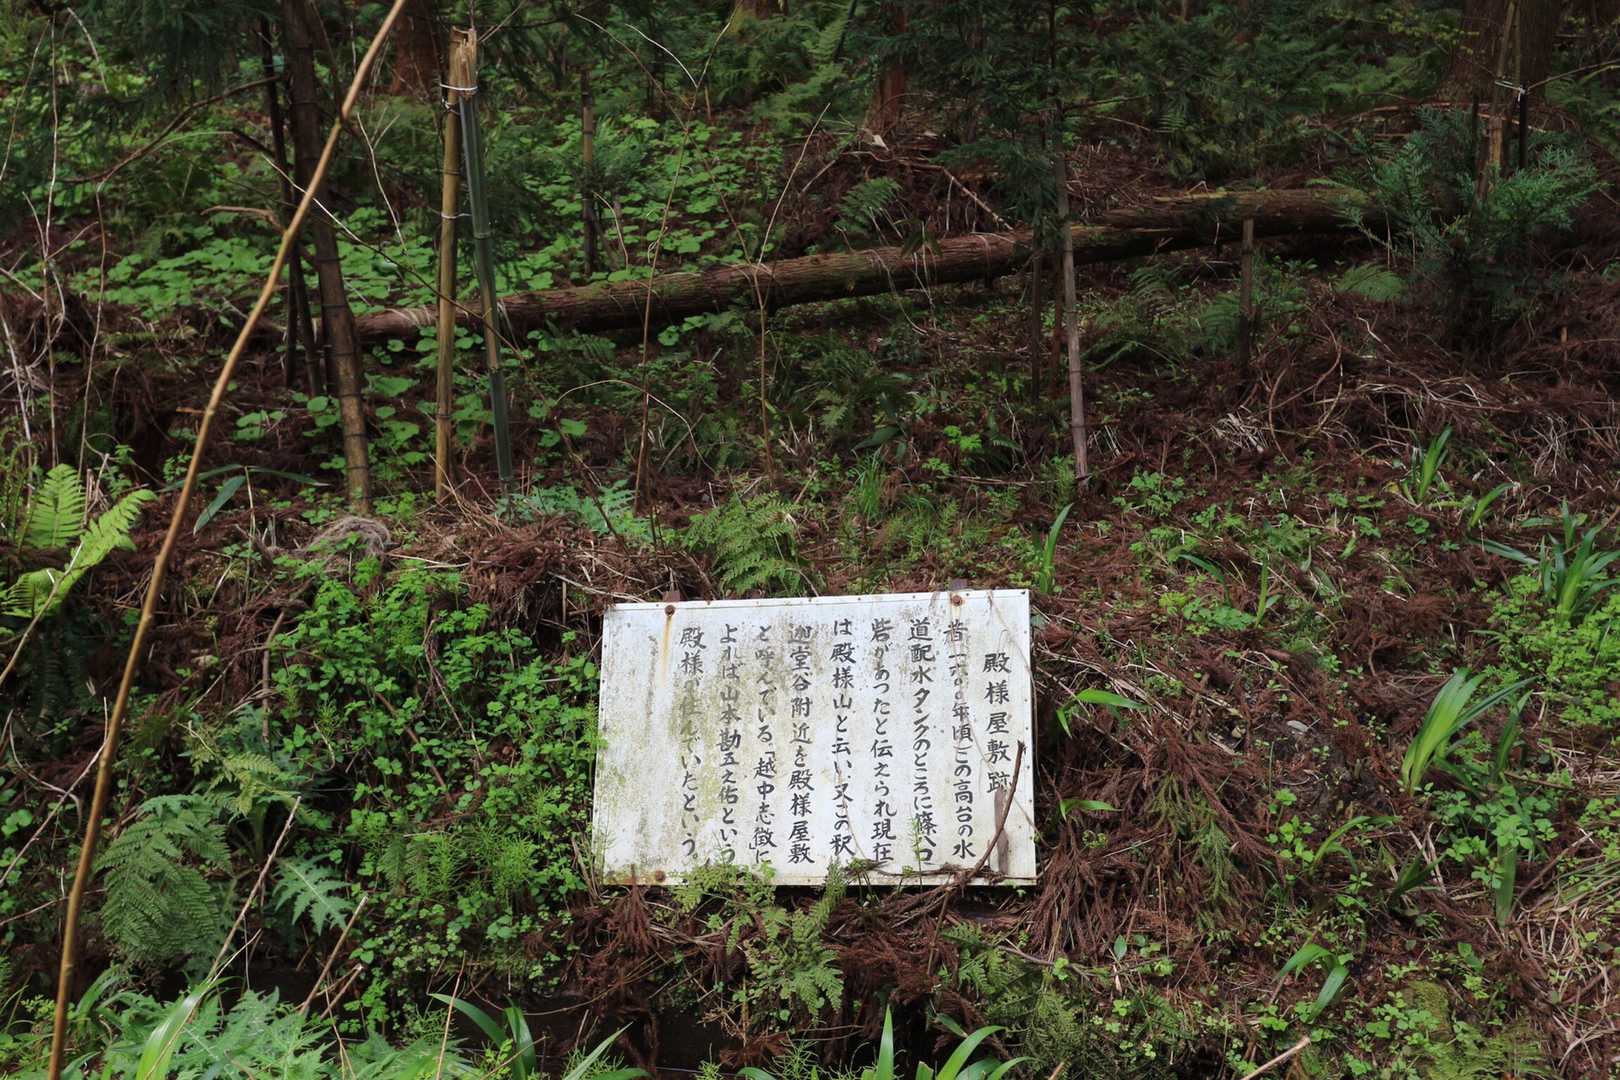 殿様屋敷跡
昔一六〇〇年頃この高台の水
道配水タンクのところに篠八口
砦があったと伝えられ現在
は殿様山と云い、又この釈
迦堂谷附近を殿様屋敷
と呼んでいる「越中志徴」に
よれば山本勘五之佑という
殿様が住んでいたという。